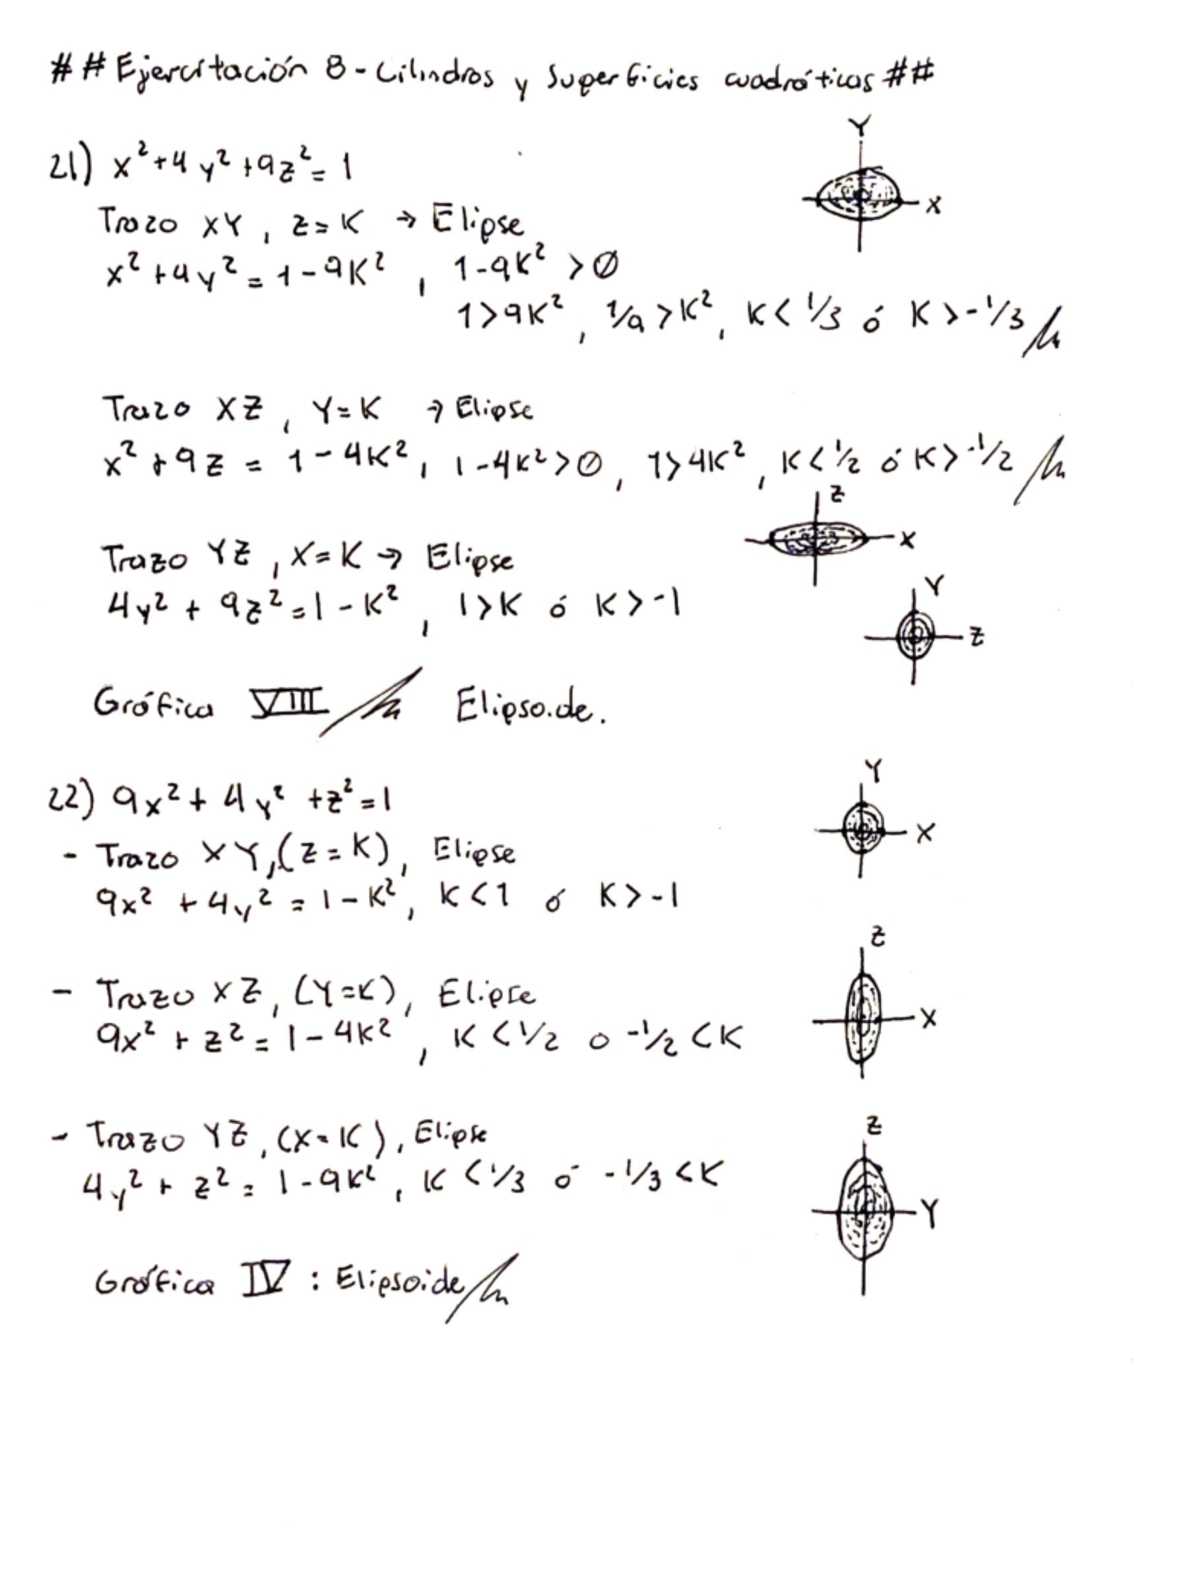 ## Ejercitación 8 - Cilindros y Superficies cuadráticas ##
21) x²+4y²+9z²=1
Y
X
Trazo XY, z=K → Elipse
x²+4y²=1-9K², 1-9K²>0
1>9K², 1/9>K², K<1/3 ó K>-1/3
Trazo XZ, Y=K → Elipse
x²+9z = 1-4K², 1-4K²>0, 1>4K², K<1/2 ó K>-1/2
Z
X
Trazo YZ, X=K → Elipse
Y
Z
4y²+9z²=1-K², 1>K ó K>-1
Gráfica VIII Elipsoide.
22) 9x²+4y²+z²=1
Y
X
- Trazo XY,(z=K), Elipse
9x²+4y²=1-K², K<1 ó K>-1
Z
X
- Trazo XZ, (Y=K), Elipse
9x²+z²=1-4K², K<1/2 o -1/2<K
Z
Y
- Trazo YZ, (X=K), Elipse
4y²+z²=1-9K², K<1/3 ó -1/3<K
Gráfica IV : Elipsoide